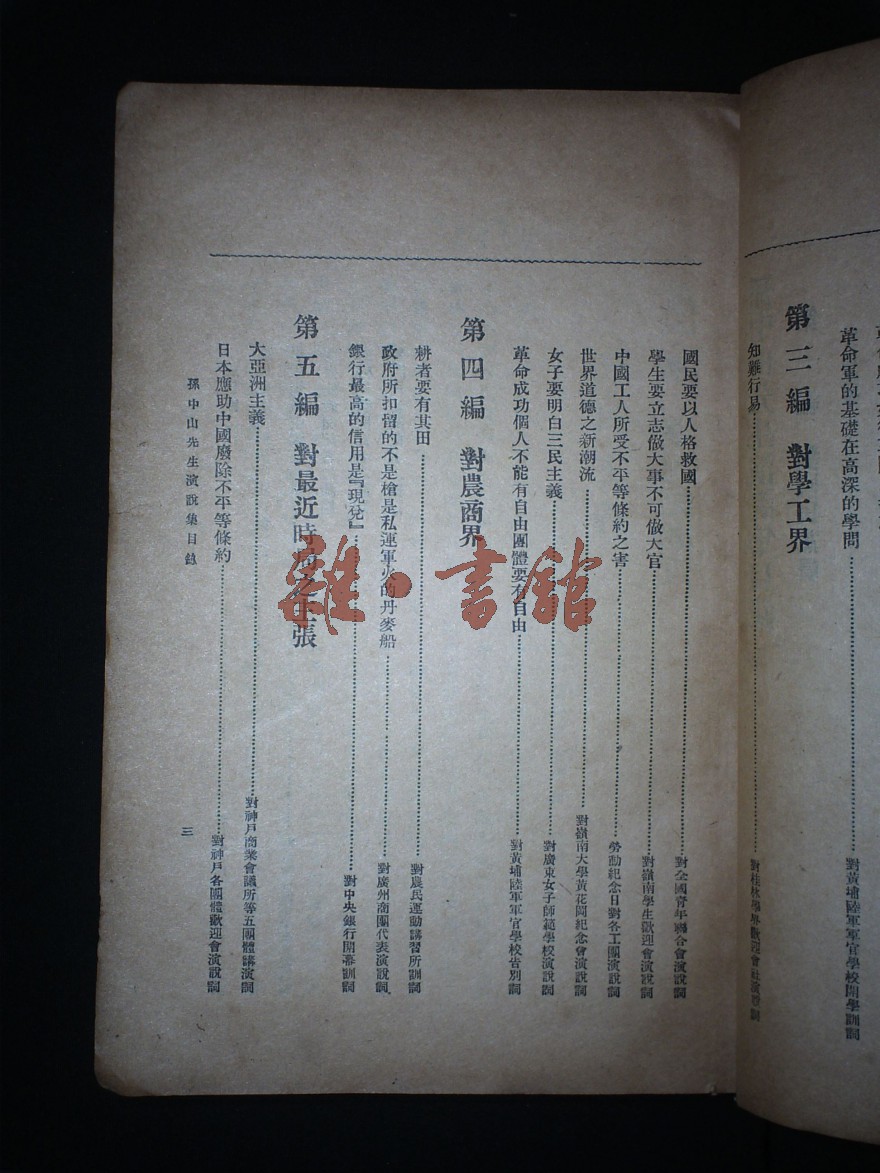 革命軍的基礎在高深的學問………對黃埔陸軍軍官學校開學訓詞
第三編 對學工界
知難行易………對桂林學界歡迎會社演說詞
國民要以人格救國………對全國青年聯合會演說詞
學生要立志做大事不可做大官………對嶺南學生歡迎會演說詞
中國工人所受不平等條約之害………勞動紀念日對各工團演說詞
世界道德之新潮流………對嶺南大學黃花岡紀念會演說詞
女子要明白三民主義………對廣東女子師範學校演說詞
革命成功個人不能有自由團體要有自由………對黃埔陸軍軍官學校告別詞
第四編 對農商界
耕者要有其田………對農民運動講習所訓詞
政府所扣留的不是槍是私運軍火的丹麥船………對廣州商團代表演說詞
銀行最高的信用是『現兌』………對中央銀行開幕訓詞
第五編 對最近時局之主張
大亞洲主義………對神戶商業會議所等五團體講演詞
日本應助中國廢除不平等條約………對神戶各團體歡迎會演說詞
孫中山先生演說集目錄
三
雜·書館